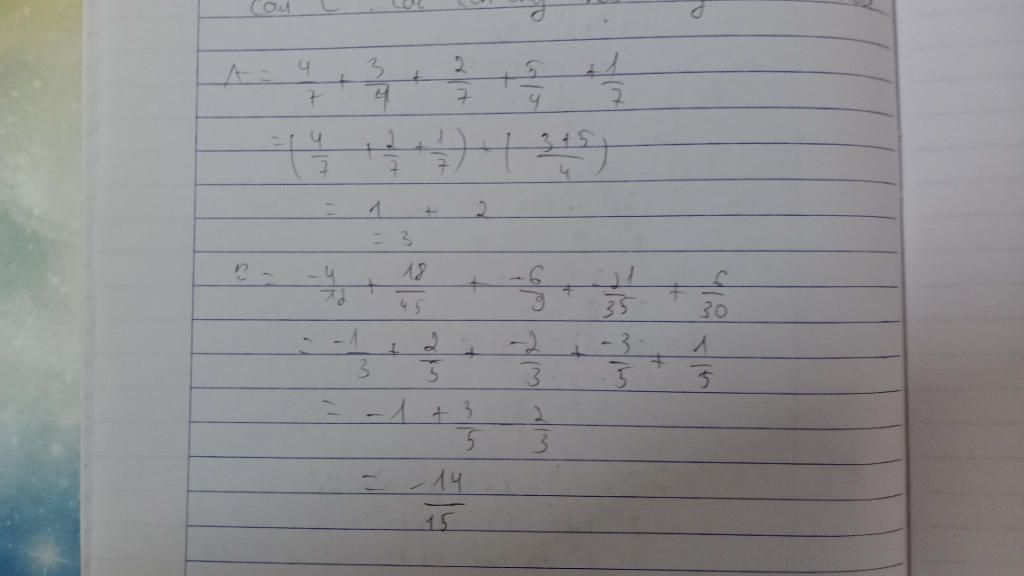 A = 4/7 + 3/4 + 2/7 + 5/4 + 1/7
= (4/7 + 2/7 + 1/7) + (3+5/4)
= 1 + 2
= 3
B = -4/12 + 18/45 + -6/9 + -21/35 + 6/30
= -1/3 + 2/5 + -2/3 + -3/5 + 1/5
= -1 + 3/5 - 2/3
= -14/15